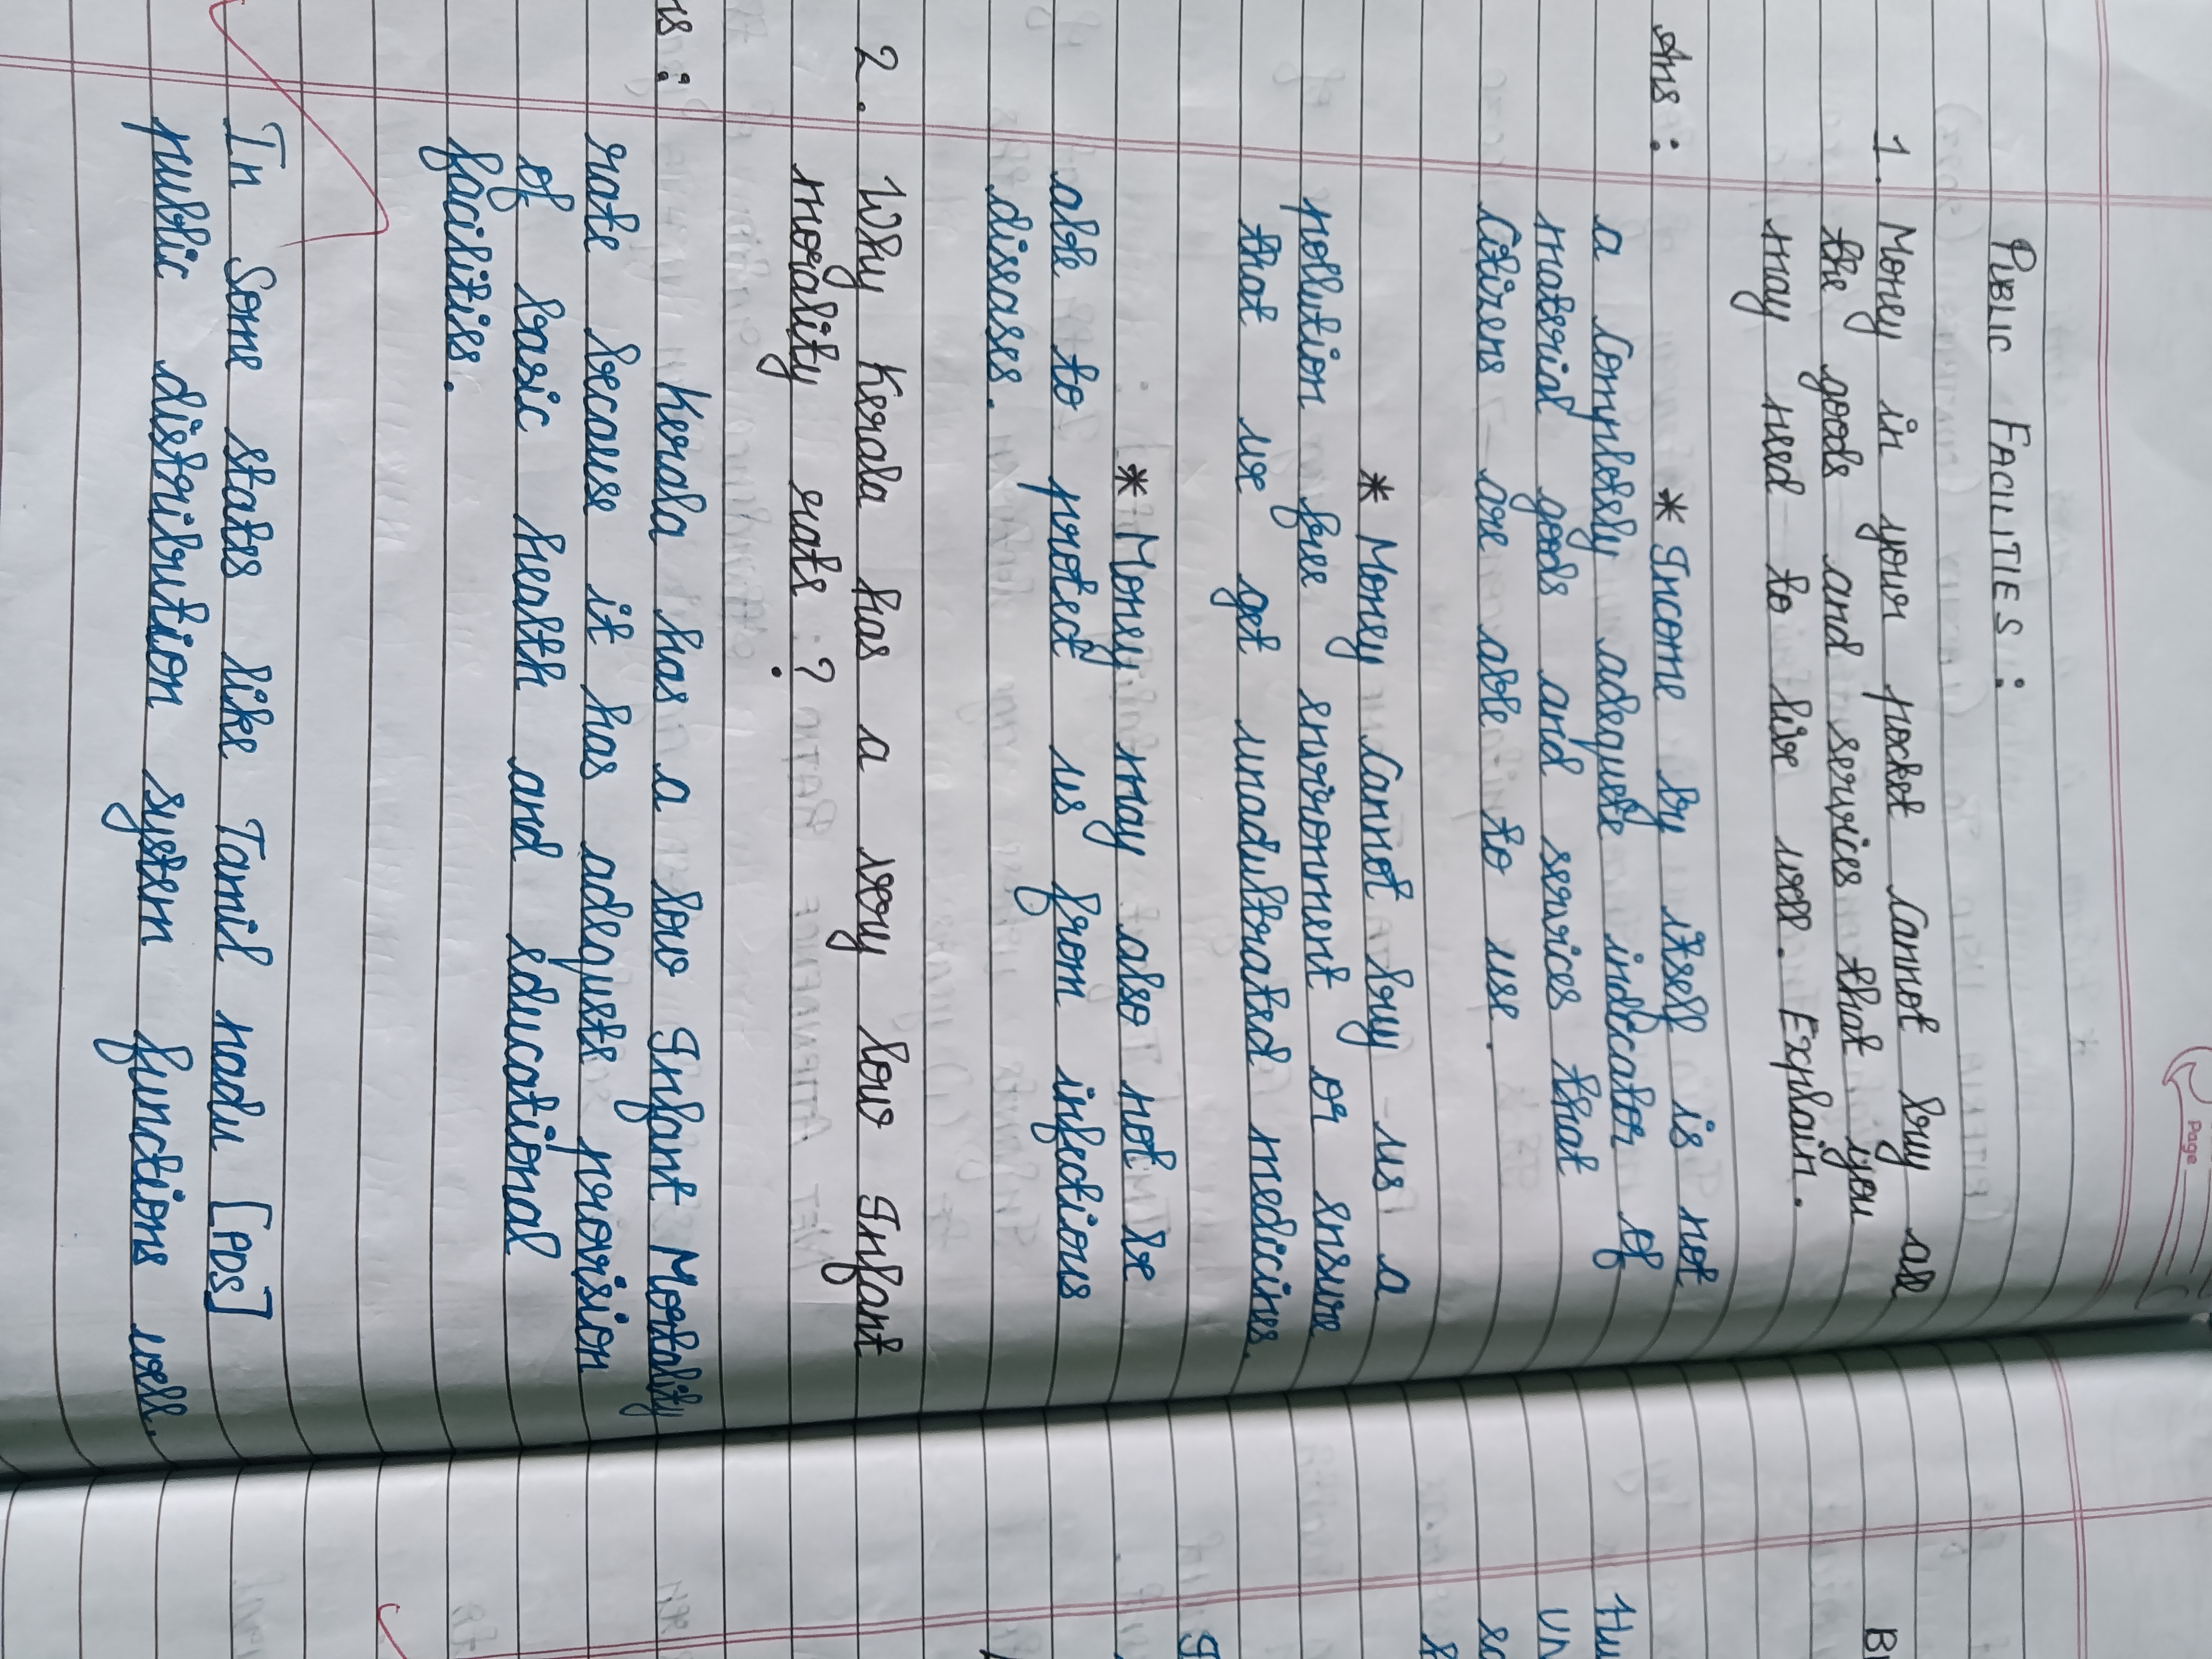 Page
PUBLIC FACILITIES :
1. Money in your pocket cannot buy all
the goods and services that you
may need to live well. Explain.
Ans : * Income by itself is not
a completely adequate indicator of
material goods and services that
citizens are able to use.
* Money cannot buy us a
pollution free environment or ensure
that we get unadultrated medicines.
* Money may also not be
able to protect us from infectious
diseases.
2. Why Kerala has a very low Infant
morality rate ?
ns : Kerala has a low Infant Mortality
rate because it has adequate provision
of basic health and educational
facilities.
In Some states like Tamil nadu [PDS]
public distribution system functions well.